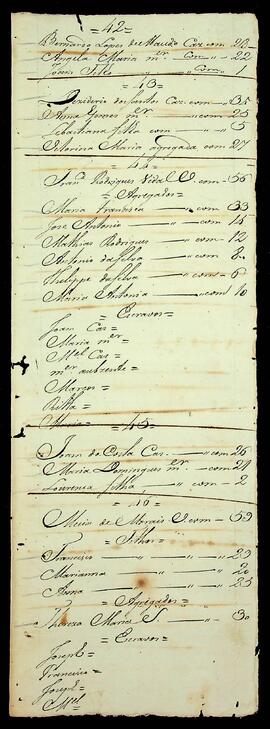 = 42 =
Bernardo Lopes de Macedo Caz. com 28
Angela Maria mer com 22
João filho com 1
= 43 =
Deziderio dos Santos Caz. com 35
Anna Gomes mer com 25
Sebastiana filha com 5
Victorina Maria agregada com 27
= 44 =
Franco Rodrigues Vidal S. com 56
= Agregados =
Maria Francisca com 33
José Antonio com 14
Mathias Rodrigues com 12
Antonio da Silva com 8
Phelippe da Silva com 6
Maria Antonia com 10
= Escravos =
Joam Caz =
Maria mer =
Mel Caz =
mer auzente =
Marcos =
Ritta =
Maria =
= 45 =
Joam da Costa Caz. com 26
Maria Domingues mer com 24
Lourença filha com 2
= 46 =
Mecia de Morais S. com 59
= Filhos =
Francisco 29
Marianna 20
Anna 25
= Agregados =
Thereza Maria S. 30
= Escravos =
Joseph =
Francisco =
Joseph =
Mel =